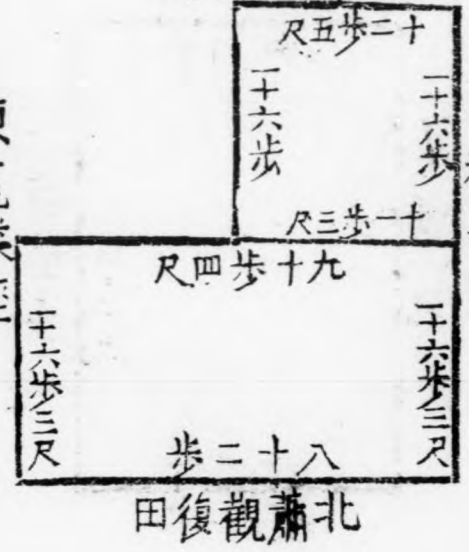 十二步五尺
一十六步
一十六步
十一步三尺
九十步四尺
一十六步三尺
一十六步三尺
八十二步
北蕭觀復田